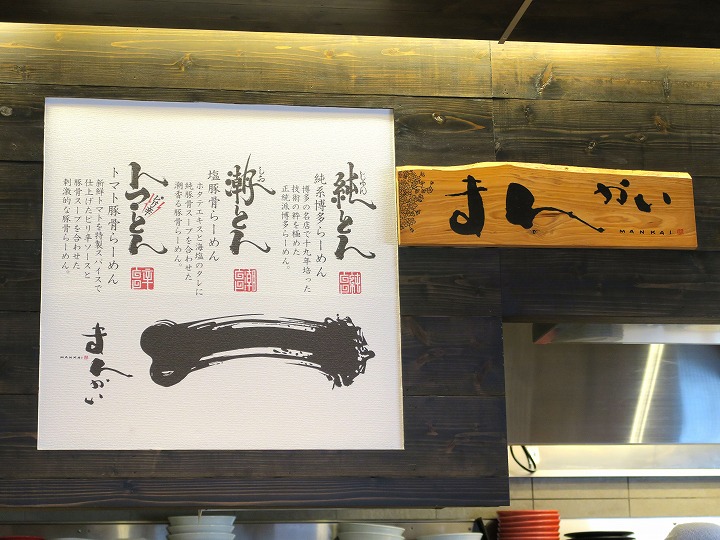 純とん
じゅん
純系博多らーめん
博多の名店で十九年培った
技術の粋を極めた
正統派博多らーめん。
潮とん
しお
塩豚骨らーめん
ホタテエキスと海塩のタレに
純豚骨スープを合わせた
潮香る豚骨らーめん。
トマとん
トマト豚骨らーめん
新鮮トマトを特製スパイスで
仕上げたピリ辛ソースと
豚骨スープを合わせた
刺激的な豚骨らーめん。
まんかい
MANKAI
まんかい
MANKAI